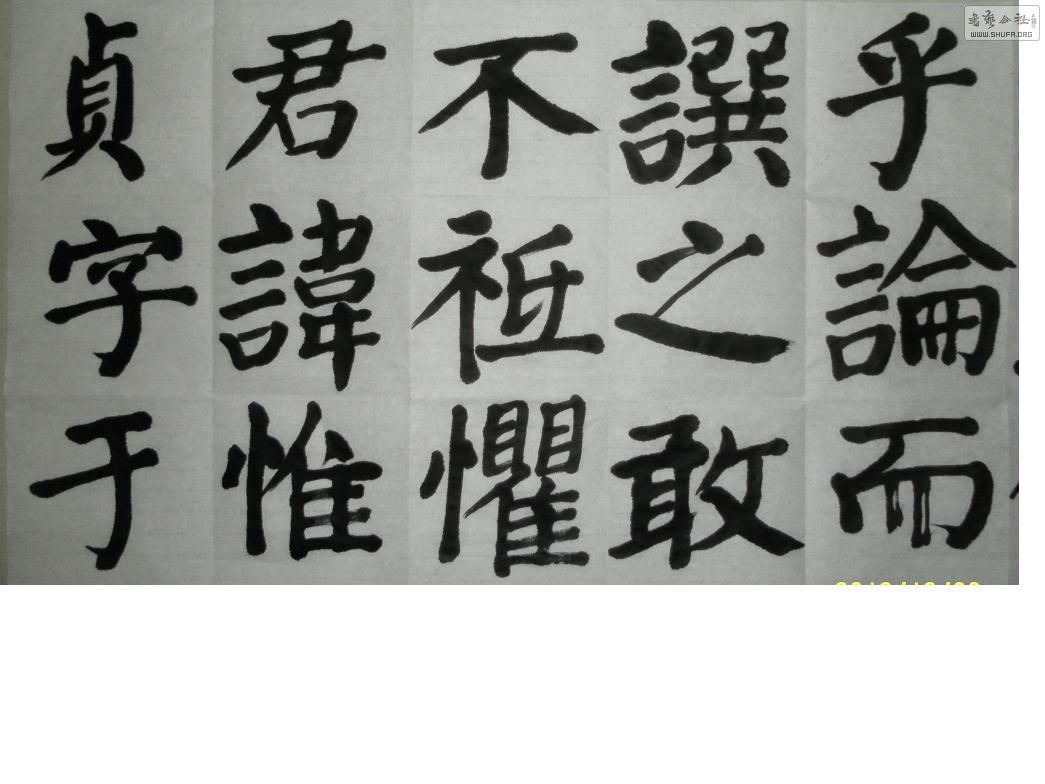 乎論而
譔之敢
不祗懼
君諱惟
貞字于
WWW.SHUFA.ORG